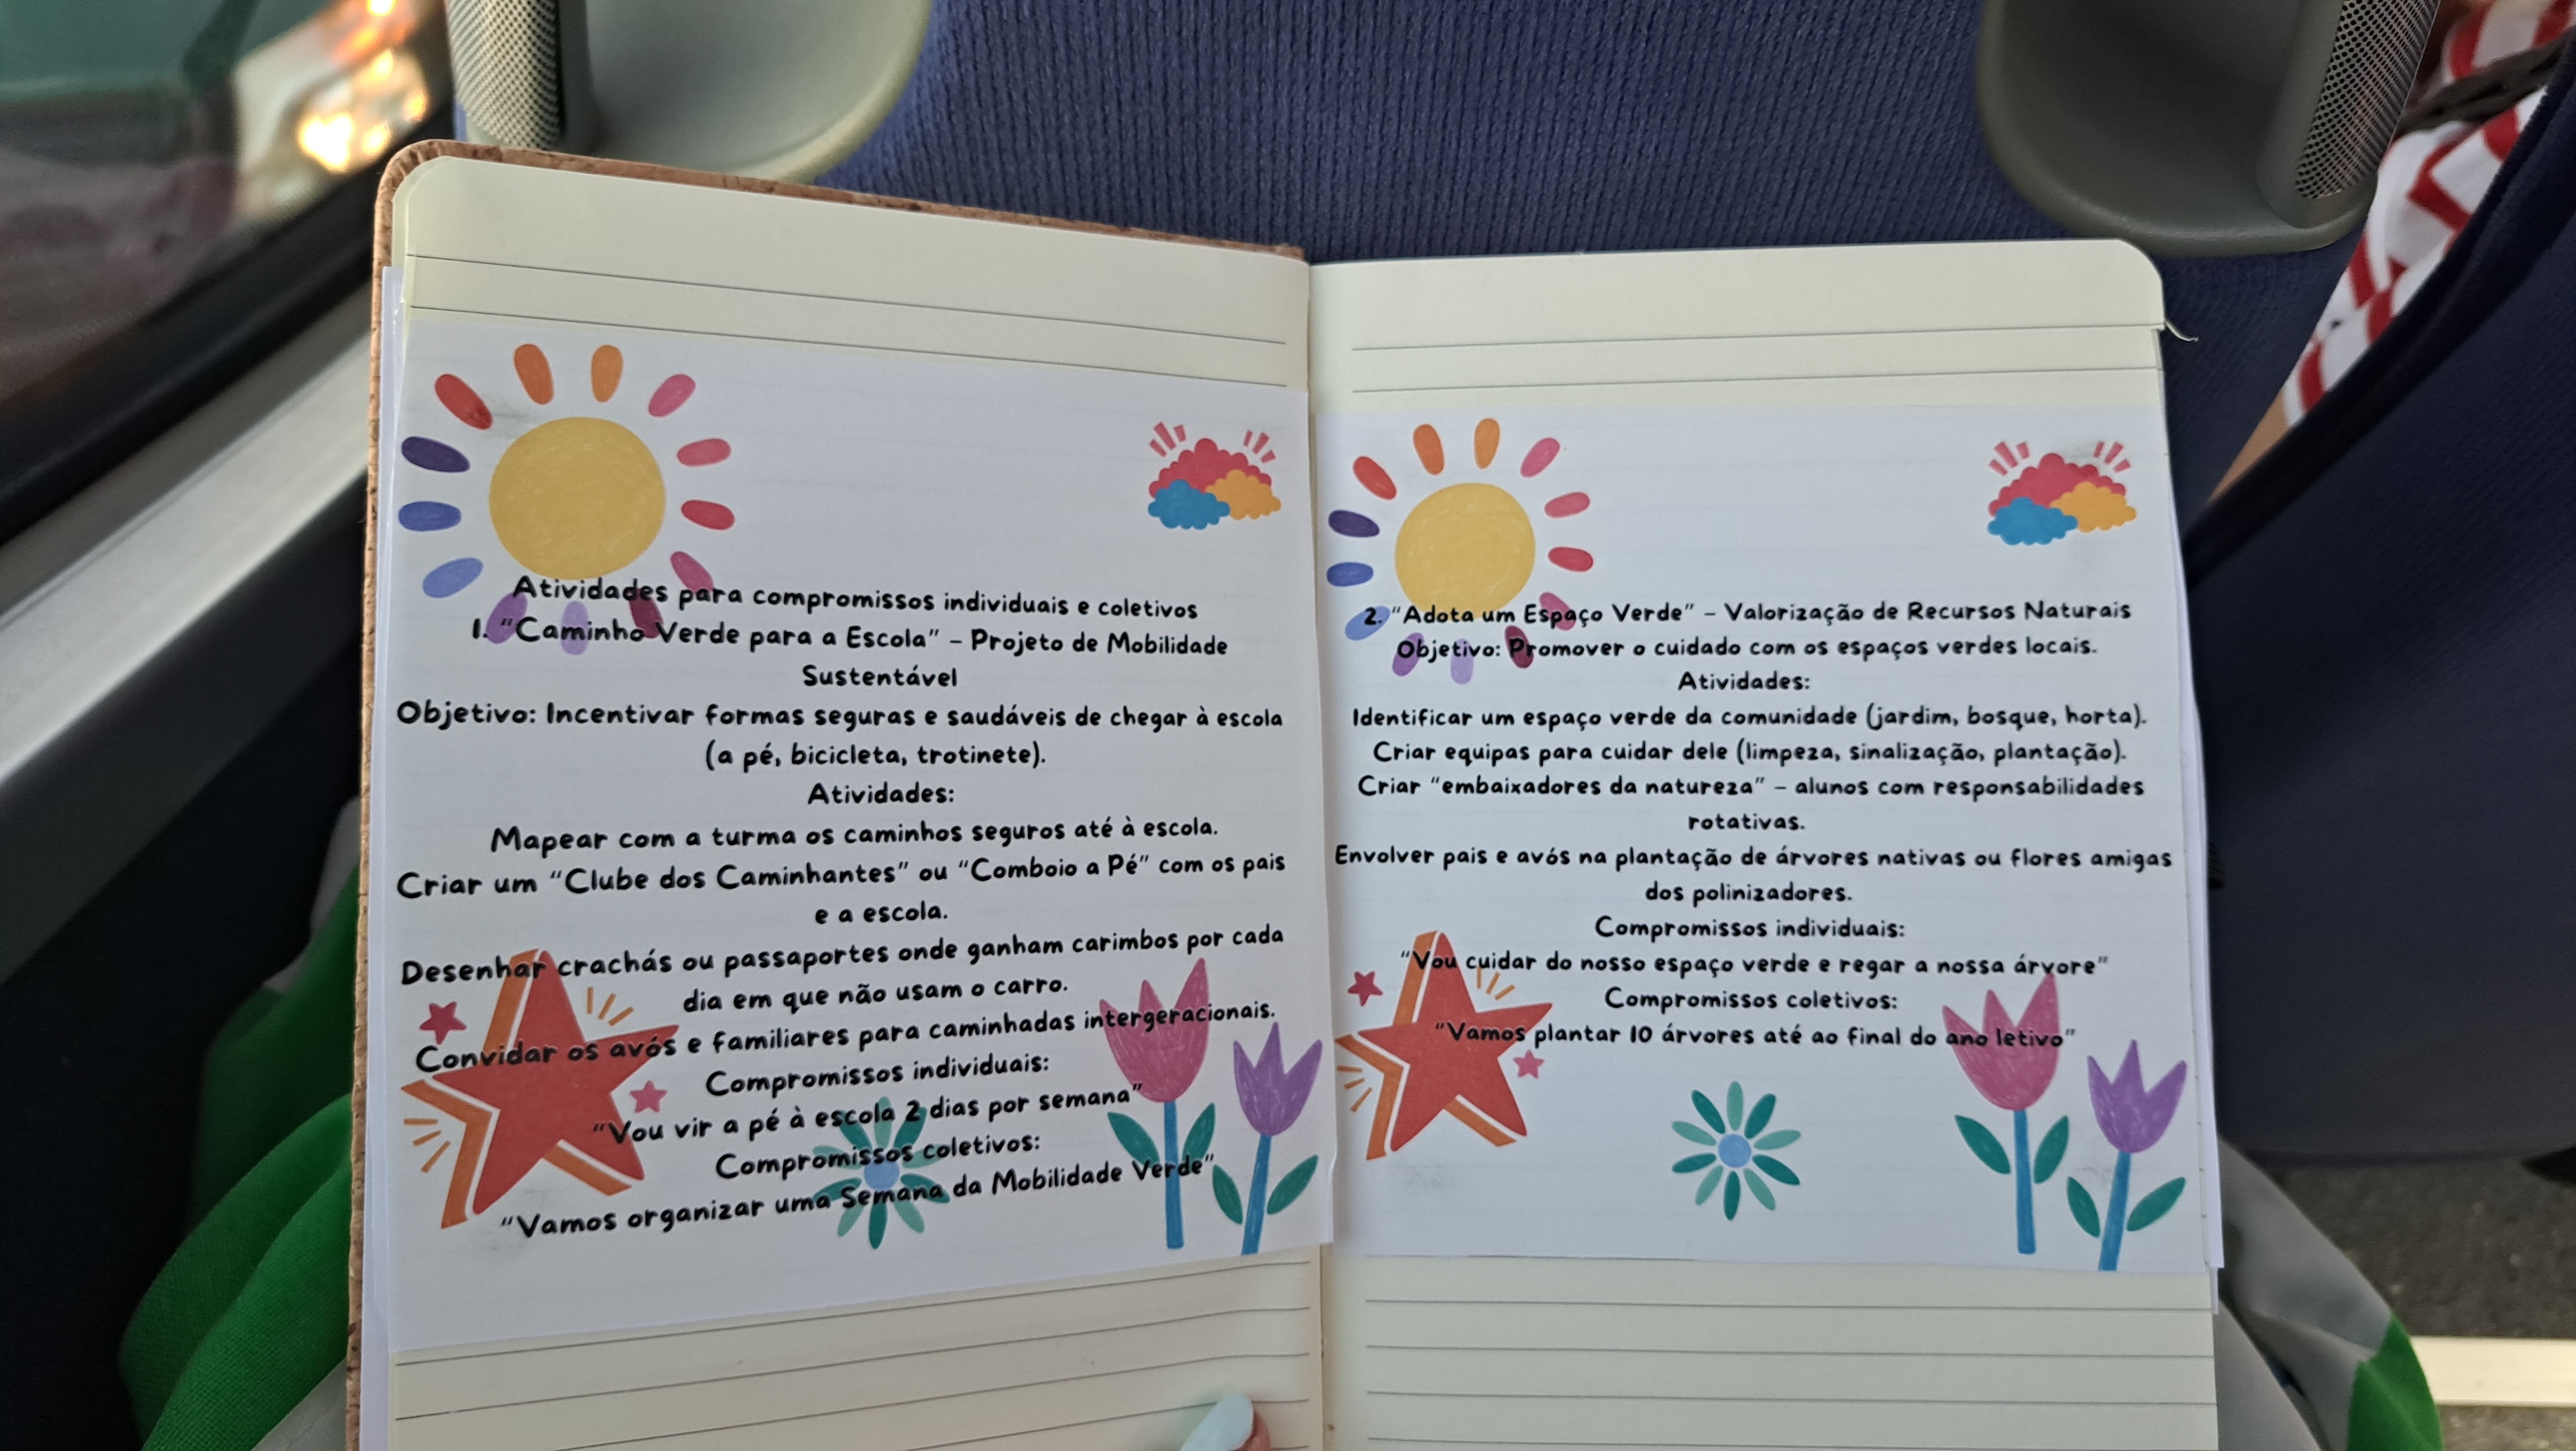 Atividades para compromissos individuais e coletivos
1. “Caminho Verde para a Escola” – Projeto de Mobilidade
Sustentável
Objetivo: Incentivar formas seguras e saudáveis de chegar à escola
(a pé, bicicleta, trotinete).
Atividades:
Mapear com a turma os caminhos seguros até à escola.
Criar um “Clube dos Caminhantes” ou “Comboio a Pé” com os pais
e a escola.
Desenhar crachás ou passaportes onde ganham carimbos por cada
dia em que não usam o carro.
Convidar os avós e familiares para caminhadas intergeracionais.
Compromissos individuais:
“Vou vir a pé à escola 2 dias por semana”
Compromissos coletivos:
“Vamos organizar uma Semana da Mobilidade Verde”
2. “Adota um Espaço Verde” – Valorização de Recursos Naturais
Objetivo: Promover o cuidado com os espaços verdes locais.
Atividades:
Identificar um espaço verde da comunidade (jardim, bosque, horta).
Criar equipas para cuidar dele (limpeza, sinalização, plantação).
Criar “embaixadores da natureza” – alunos com responsabilidades
rotativas.
Envolver pais e avós na plantação de árvores nativas ou flores amigas
dos polinizadores.
Compromissos individuais:
“Vou cuidar do nosso espaço verde e regar a nossa árvore”
Compromissos coletivos:
“Vamos plantar 10 árvores até ao final do ano letivo”